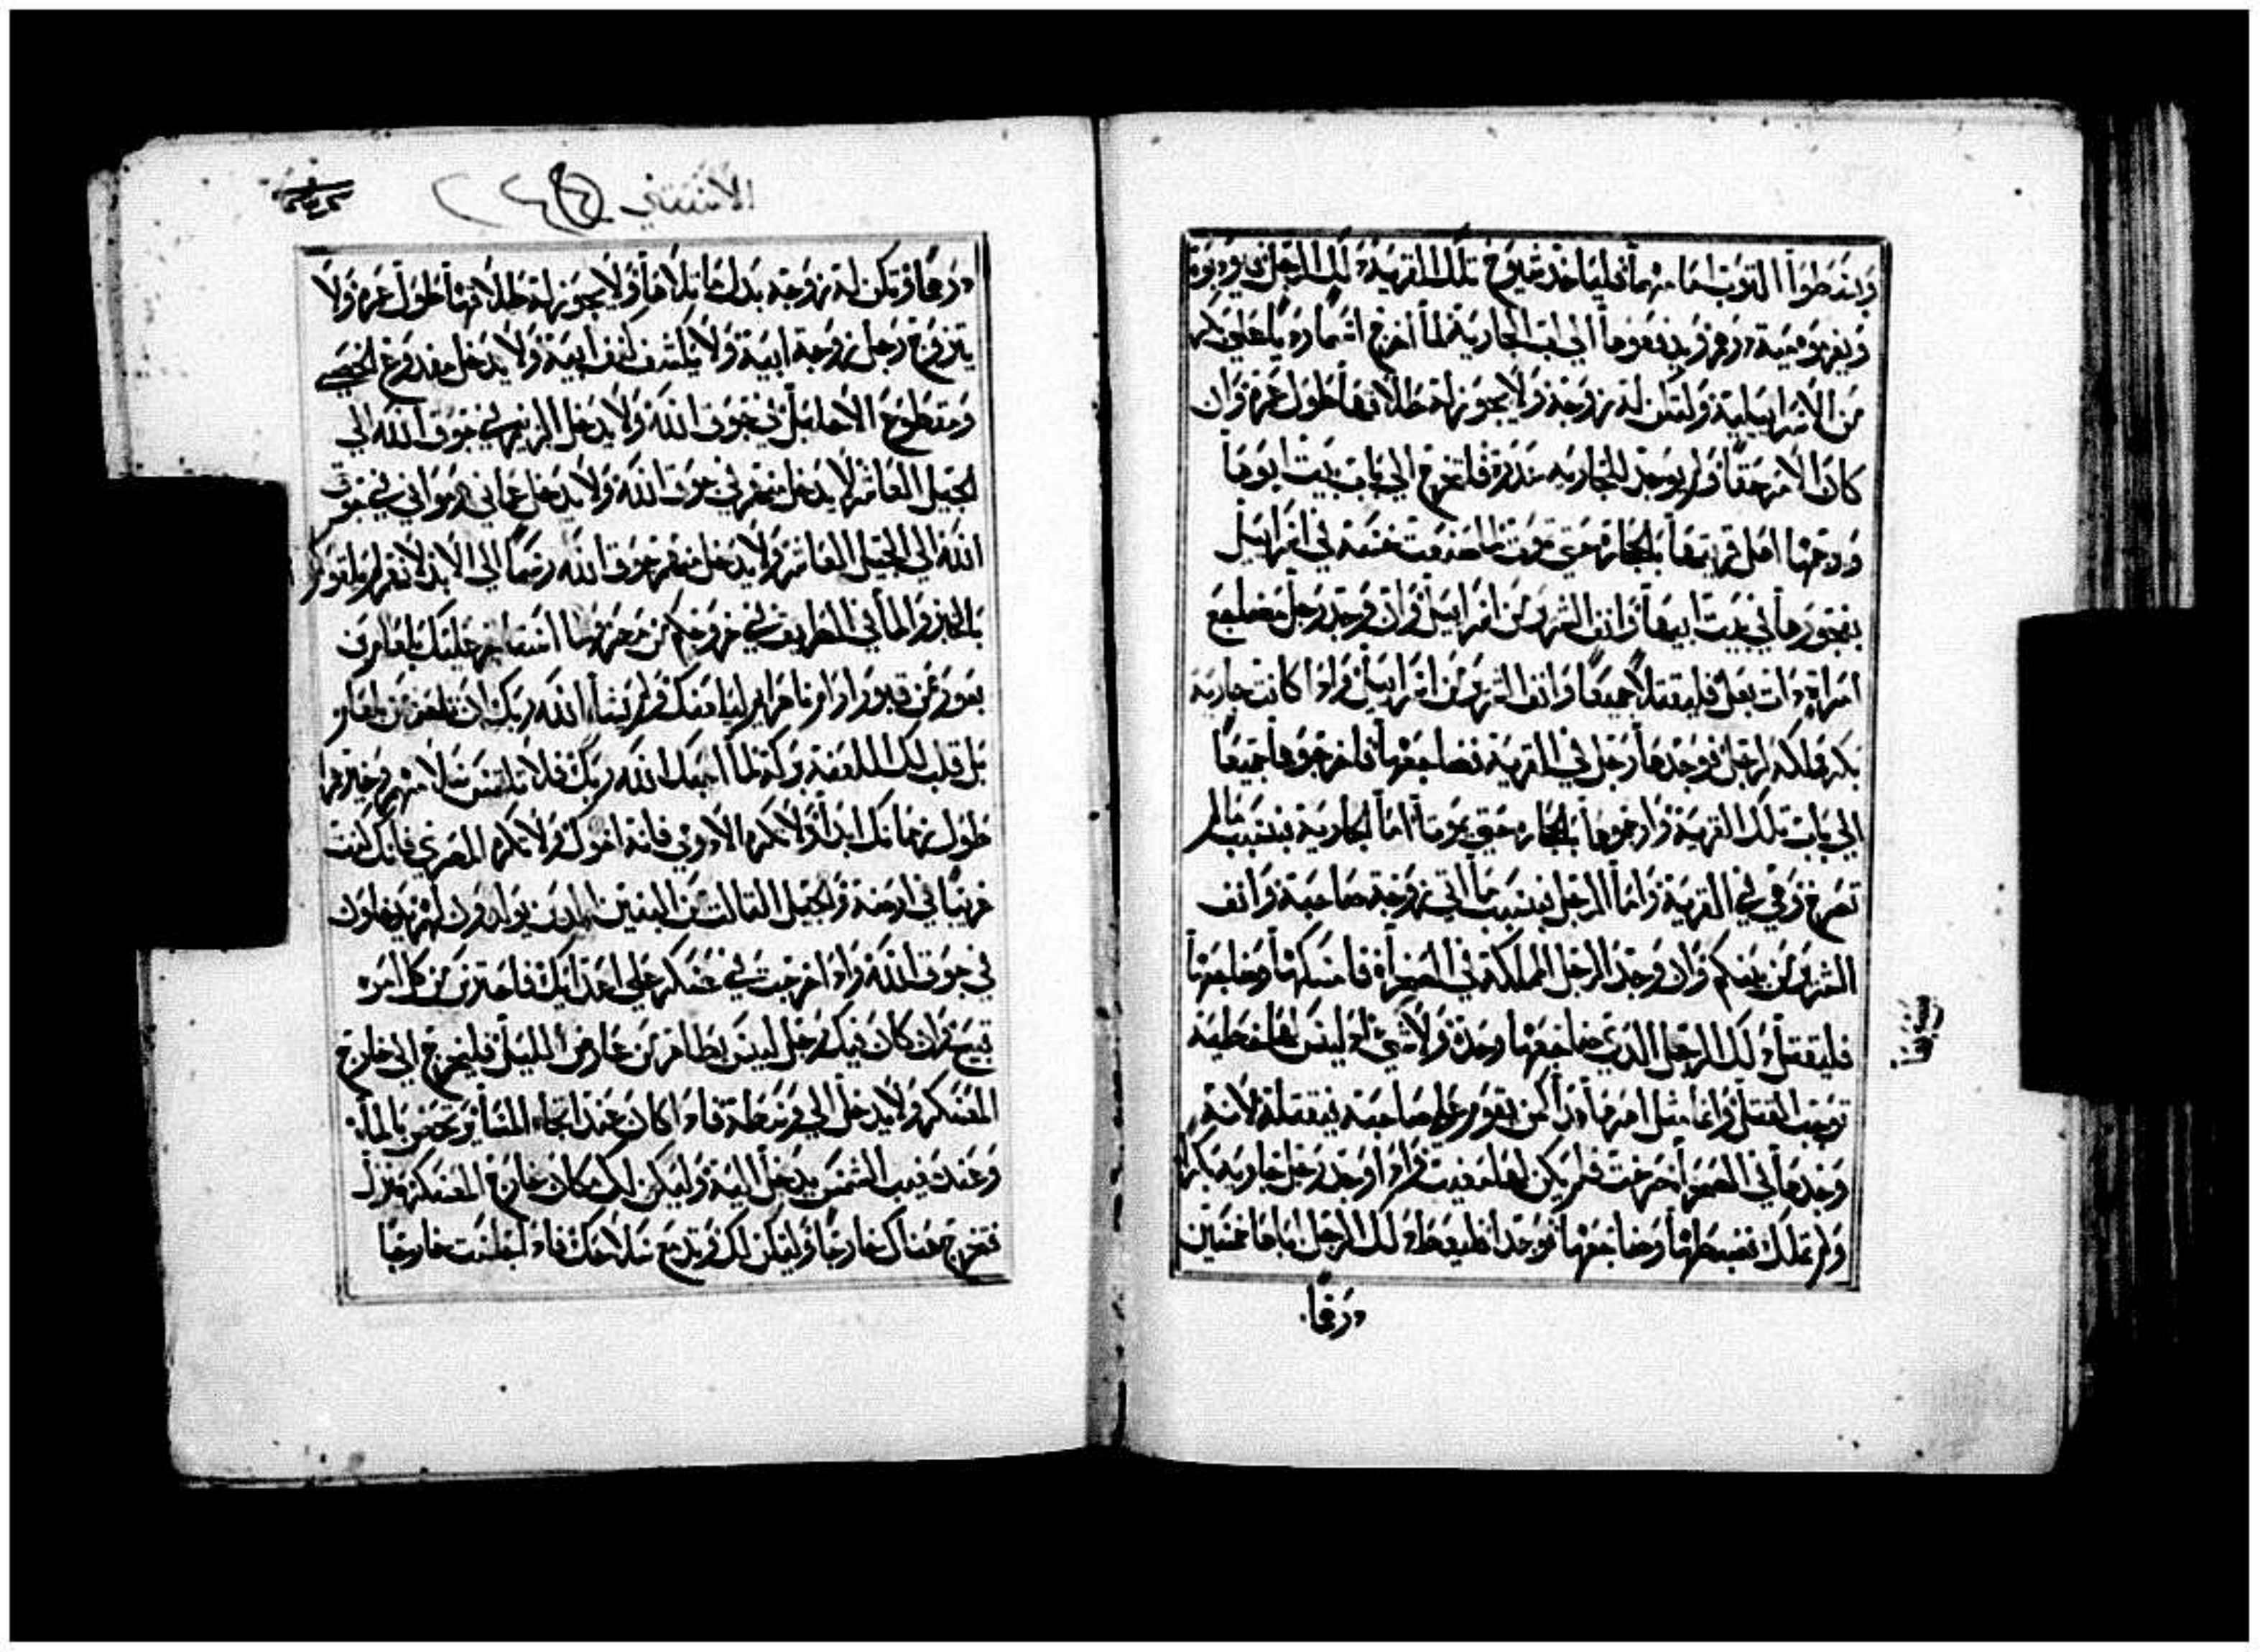 ويبسطوا الثوب امامهما فلياخد شيوخ تلك القرية دلك الرجل يودبوه
ويغرموه مية درهم ويدفعوها الي اب الجارية لما اخرج اسما رديا علي بكر
من الاسراييلية ولتكن له زوجة ولا يجوز له طلاقها طول عمره وان
كان الامر حقا ولم يوجد للجاريه عدرة فلتخرج الي باب بيت ابوها
ورجمها اهل قريتها بالحجارة حتي تموت لما صنعت خسة في اسراييل
بفجورها في بيت ابيها وانف الشر من اسراييل وان وجد رجل مضاجع
امراة دات بعل فليقتلا جميعا وانف الشر من اسراييل وادا كانت جاريه
بكر مملكه لرجل فوجدها رجل في القرية فضاجعها فاخرجوهما جميعا
الي باب تلك القرية وارجموهما بالحجاره حتي يموتا اما الجارية بسبب ما لم
تصرخ وهي في القرية واما الرجل بسبب ما اتي زوجة صاحبه وانف
الشر من بينكم وان وجد الرجل المملكة في الصحرا فامسكها وضاجعها
فليقتل دلك الرجل الدي ضاجعها وحده ولا شي اد ليس لها خطية
توجب القتل وانما مثل امرها كمن يقوم علي صاحبه فيقتله لانه
وجدها في الصحرا صرخت فلم يكن لها مغيت وادا وجد رجل جاريه بكرا
ولم تملك فضبطها وضاجعها فوجدا فليعط دلك الرجل اباها خمسين
درهما
الاستثني
درهما وتكن له زوجة بدل ما بلاها ولا يجوز له طلاقها طول عمره ولا
يتزوج رجل زوجة ابيه ولا يكشف كنف ابيه ولا يدخل مفدوغ الخصي
ومقطوع الاحليل في جوق الله ولا يدخل الزنيم في جوق الله الي
الجيل العاشر لا يدخل منهم في جوق الله ولا يدخل عماني وموابي في جوق
الله الي الجيل العاشر ولا يدخل منهم جوق الله ايضا الي الابد لانهم لم يلقوكم
بالخبز والما في الطريق في خروجكم من مصر ولما استاجر عليك بلعام بن
بعور من فتور ارام نهرايم ليلعنك ولم يشا الله ربك ان يقبل من بلعام
بل قلب لك اللعنة بركة لما احبك الله ربك فلا تلتمس سلامهم وخيرهم
طول زمانك ابدا ولا تكره الادومي فانه اخوك ولا تكره المصري فانك كنت
غريبا في ارضه والجيل التالت من البنين الدين يولدون لهم يدخلون
في جوق الله وادا خرجت في عسكر علي اعدايك فاحترس من كل امره
قبيح وان كان فيك رجل ليس بطاهر من عارض الليل فليخرج الي خارج
العسكر ولا يدخل الي وسطه فادا كان عند اتجاه المسا يرتحض بالما
وعند مغيب الشمس يدخل اليه وليكن لك مكان خارج العسكر منزل
فتخرج هناك خارجا وليكن لك وتد مع سلاحك فادا جلست خارجا